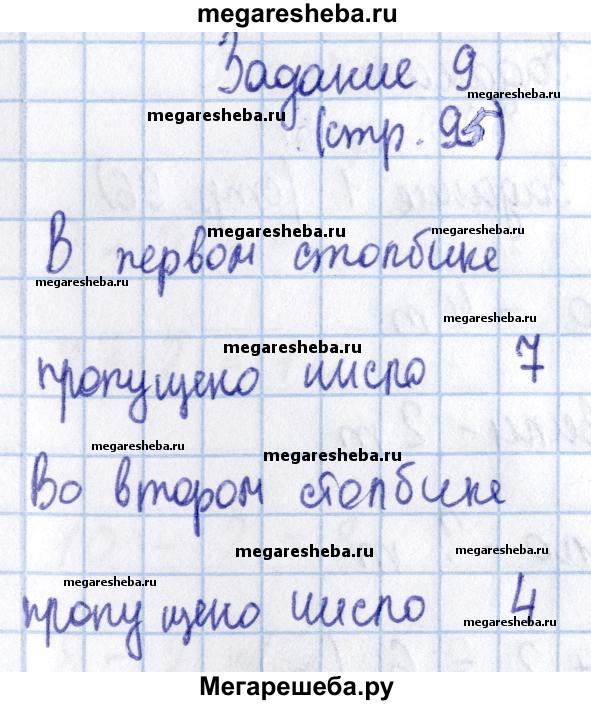 megaresheba.ru
Задание 9
megaresheba.ru
megaresheba.ru
(стр. 95)
megaresheba.ru
megaresheba.ru
В первом столбике
megaresheba.ru
megaresheba.ru
megaresheba.ru
пропущено число 7
megaresheba.ru
megaresheba.ru
Во втором столбике
megaresheba.ru
megaresheba.ru
megaresheba.ru
пропущено число 4
megaresheba.ru
megaresheba.ru
Мегарешеба.ру